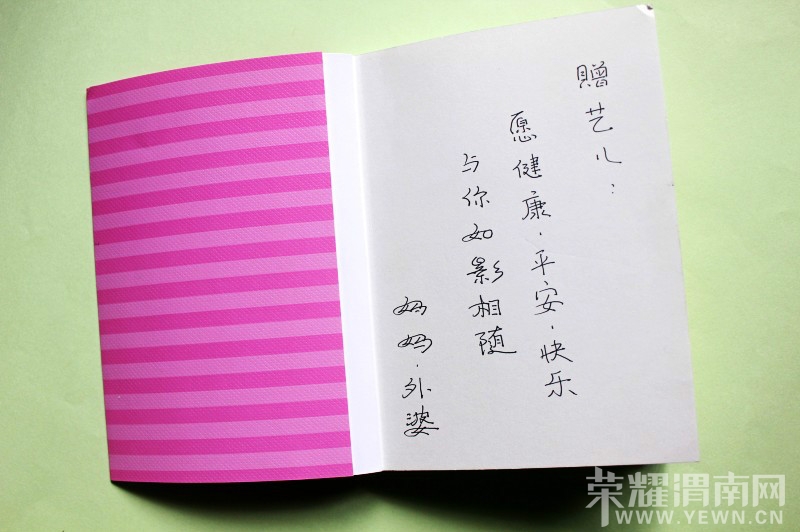 贈艺儿：
愿健康·平安·快乐
与你如影相随
妈妈·外婆
荣耀渭南网
WWW.YEWN.CN